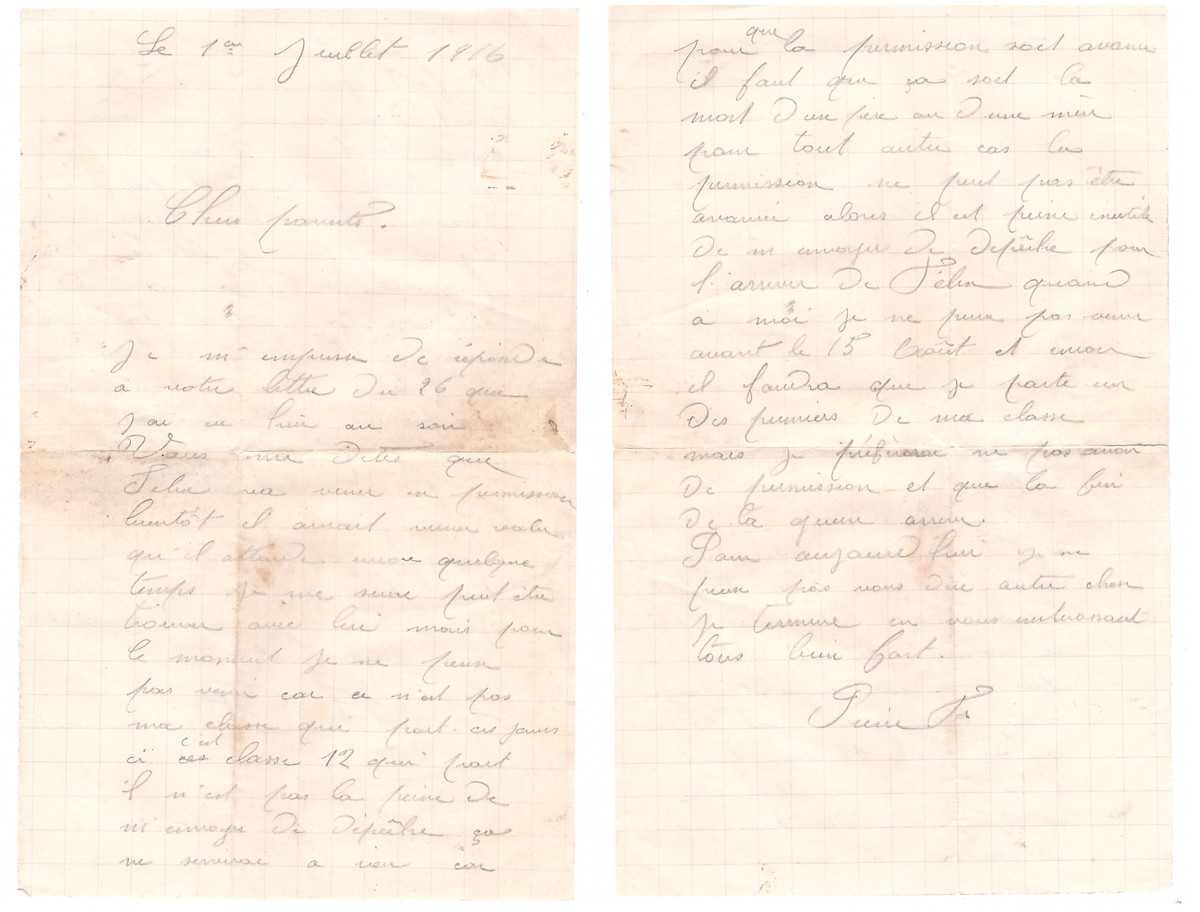 Le 1er Juillet 1916
Chers parents.
Je m'empresse de répondre
a votre lettre du 26 que
j'ai eu hier au soir
Vous me dites que
Félix va venir en permission
bientôt il aurait mieux valu
qu'il attende encore quelque
temps je me serai peut être
trouver avec lui mais pour
le moment je ne peux
pas venir car ce n'est pas
ma classe qui part ces jours
ci c'est classe 12 qui part
il n'est pas la peine de
m'envoyer de dépêche ça
ne servirai a rien car
pour que la permission soit avancée
il faut que ça soit la
mort d'un père ou d'une mère
pour tout autre cas la
permission ne peut pas être
avancée alors il est peine inutile
de m'envoyer de depêche pour
l'arriver de Félix quand
a moi je ne peux pas venir
avant le 15 Août et encore
il faudra que je parte un
des premiers de ma classe
mais je préfèrerai ne pas avoir
de permission et que la fin
de la guerre arrive.
Pour aujourd'hui je ne
peux pas vous dire autre chose
je termine en vous embrassant
tous bien fort.
Pierre